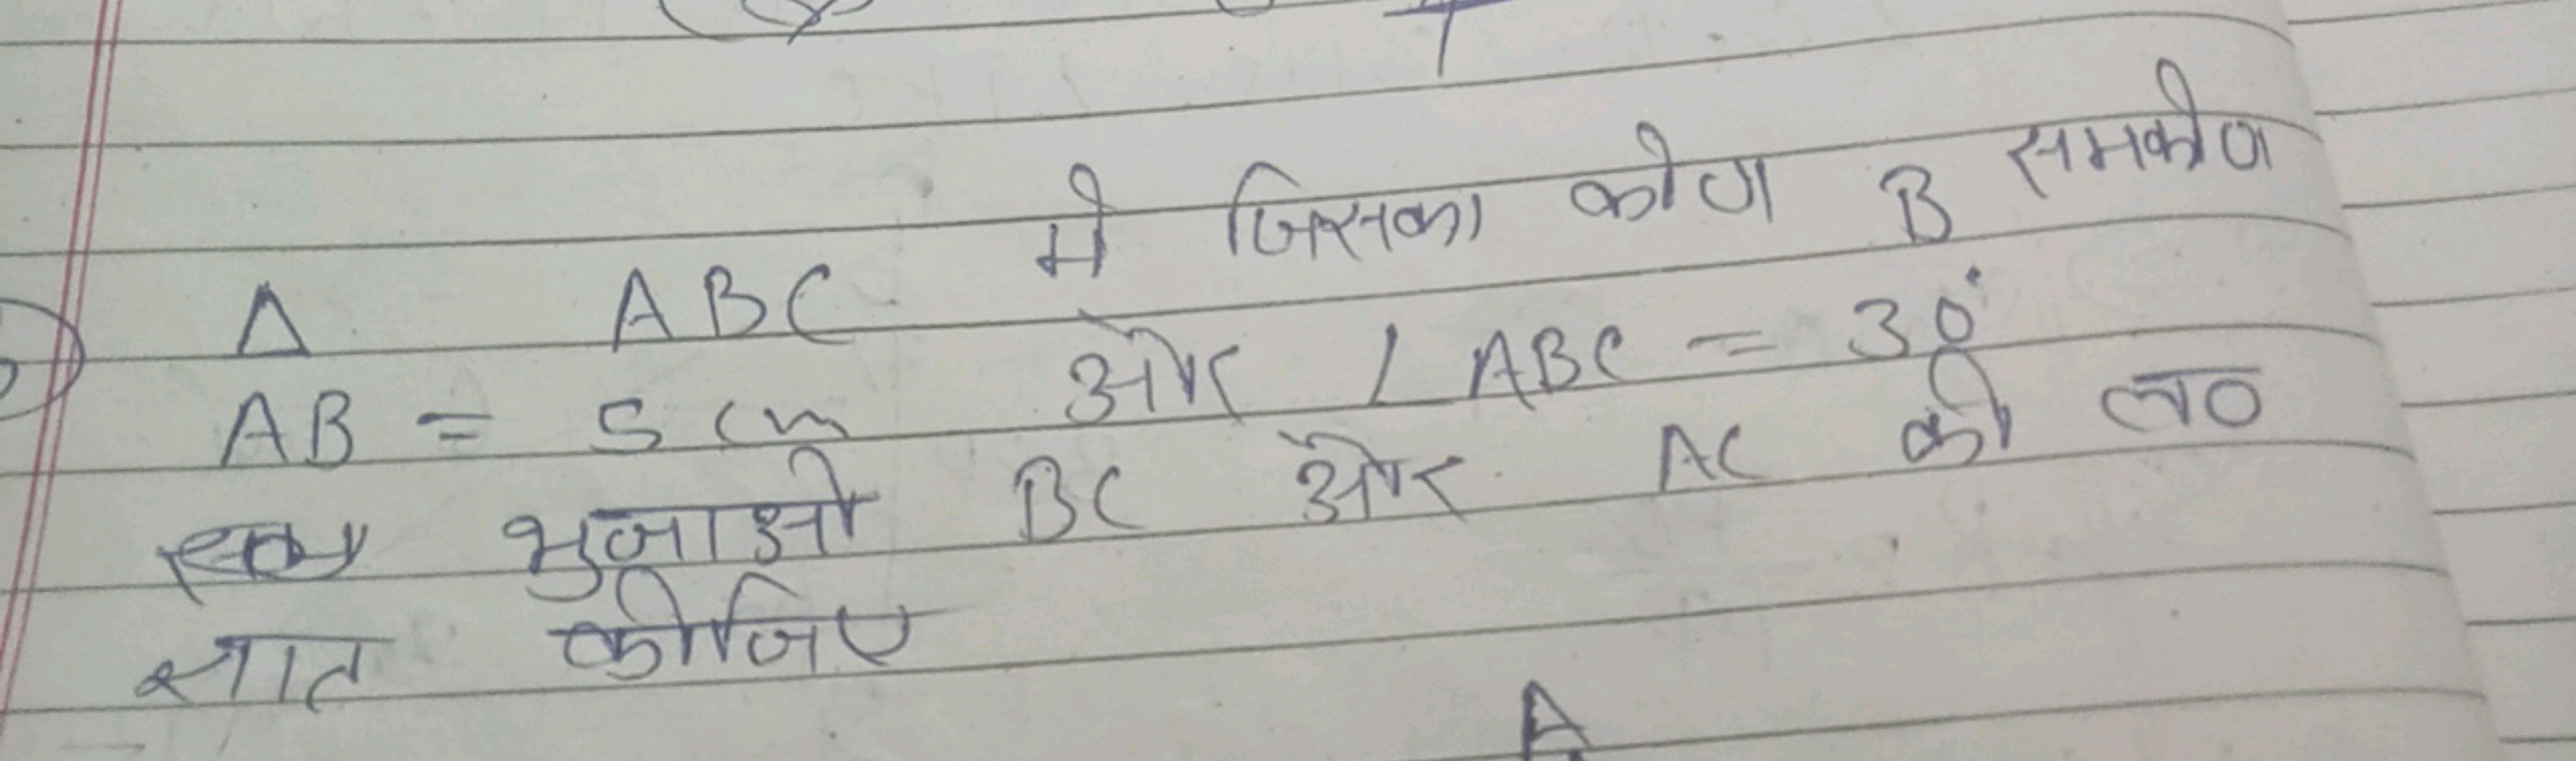 Δ ABC में जिसका कोण B समकोण
AB = 5 cm और ∠ ABC = 30°
भुजाओ BC और AC की ल०
ज्ञात कीजिए
A